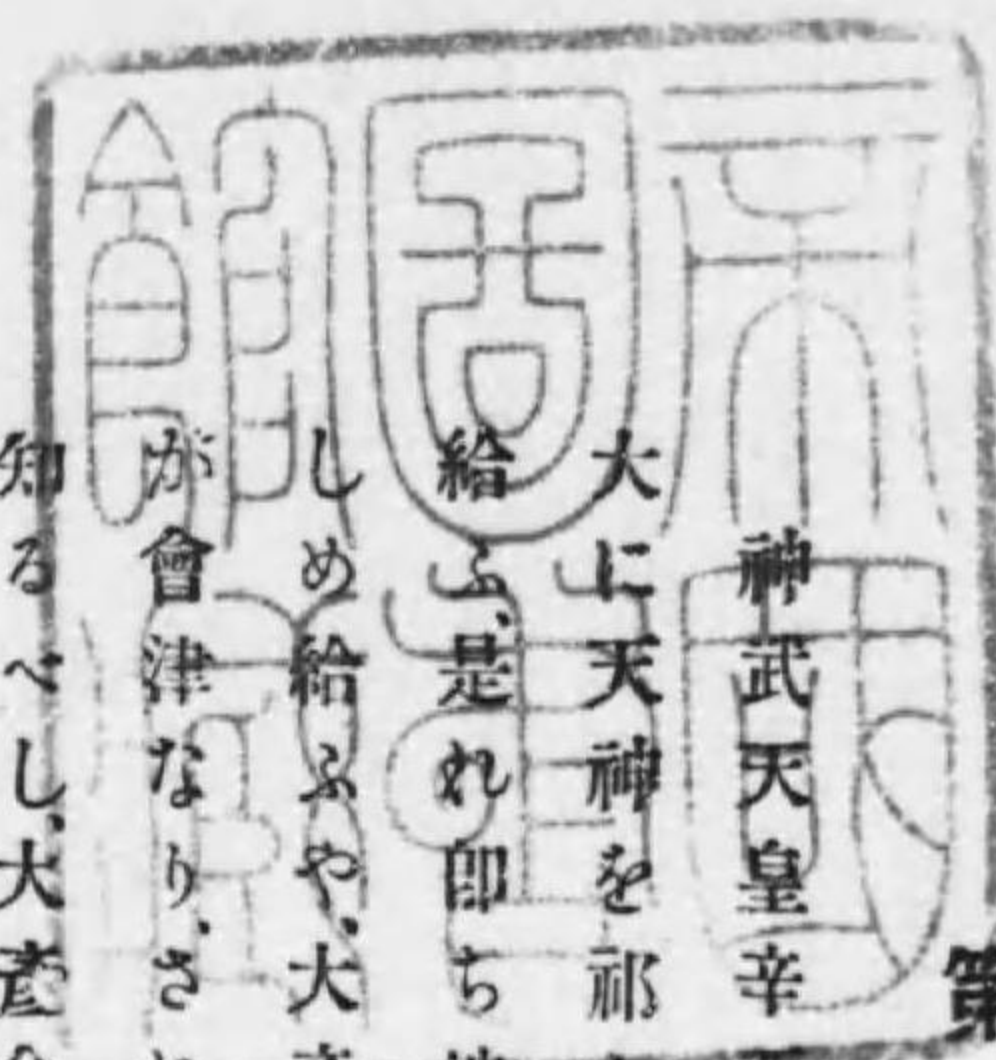 第
神武天皇辛
大に天神を祁
給ふ、是れ卽ち
しめ給ふや、大
が會津なり、さ
知るべし、大彥
帝國圖書館藏